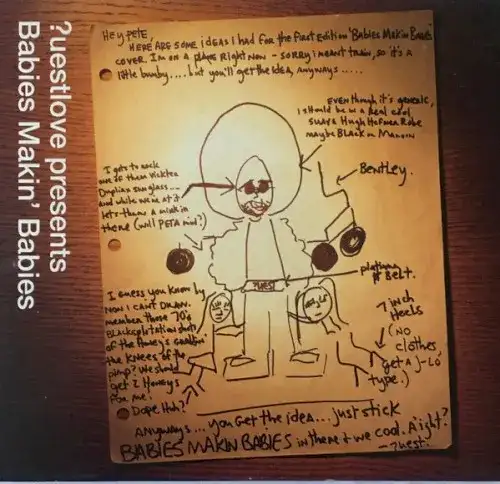 ?uestlove presents
Babies Makin' Babies
Hey Pete,
Here are some ideas I had for the first edition 'Babies Makin Babies
cover. I'm on a plane right now - sorry i meant train, so it's a
little bumby..... but you'll get the idea, anyways.....
Even though it's generic,
I should be in a real cool
suave Hugh Hefner Robe
maybe Black or Maroon
Bentley.
I gots to rock
one of them
sunglass...
and while we're at it
lets throw a mink in
there (will PETA mind?)
platinum
? Belt.
?uest
I guess you know by
now I can't draw.
member those 70's
Blacksploitation shots
of the honeys
the knees of the
pimp? We should
get 2 Honeys
for me.
Dope Huh?
7 inch
Heels
(No
clothes,
get a J-Lo
type.)
Anyways... you get the idea... just stick
BABIES MAKIN BABIES in there & we cool. A'ight?
- ?uest.